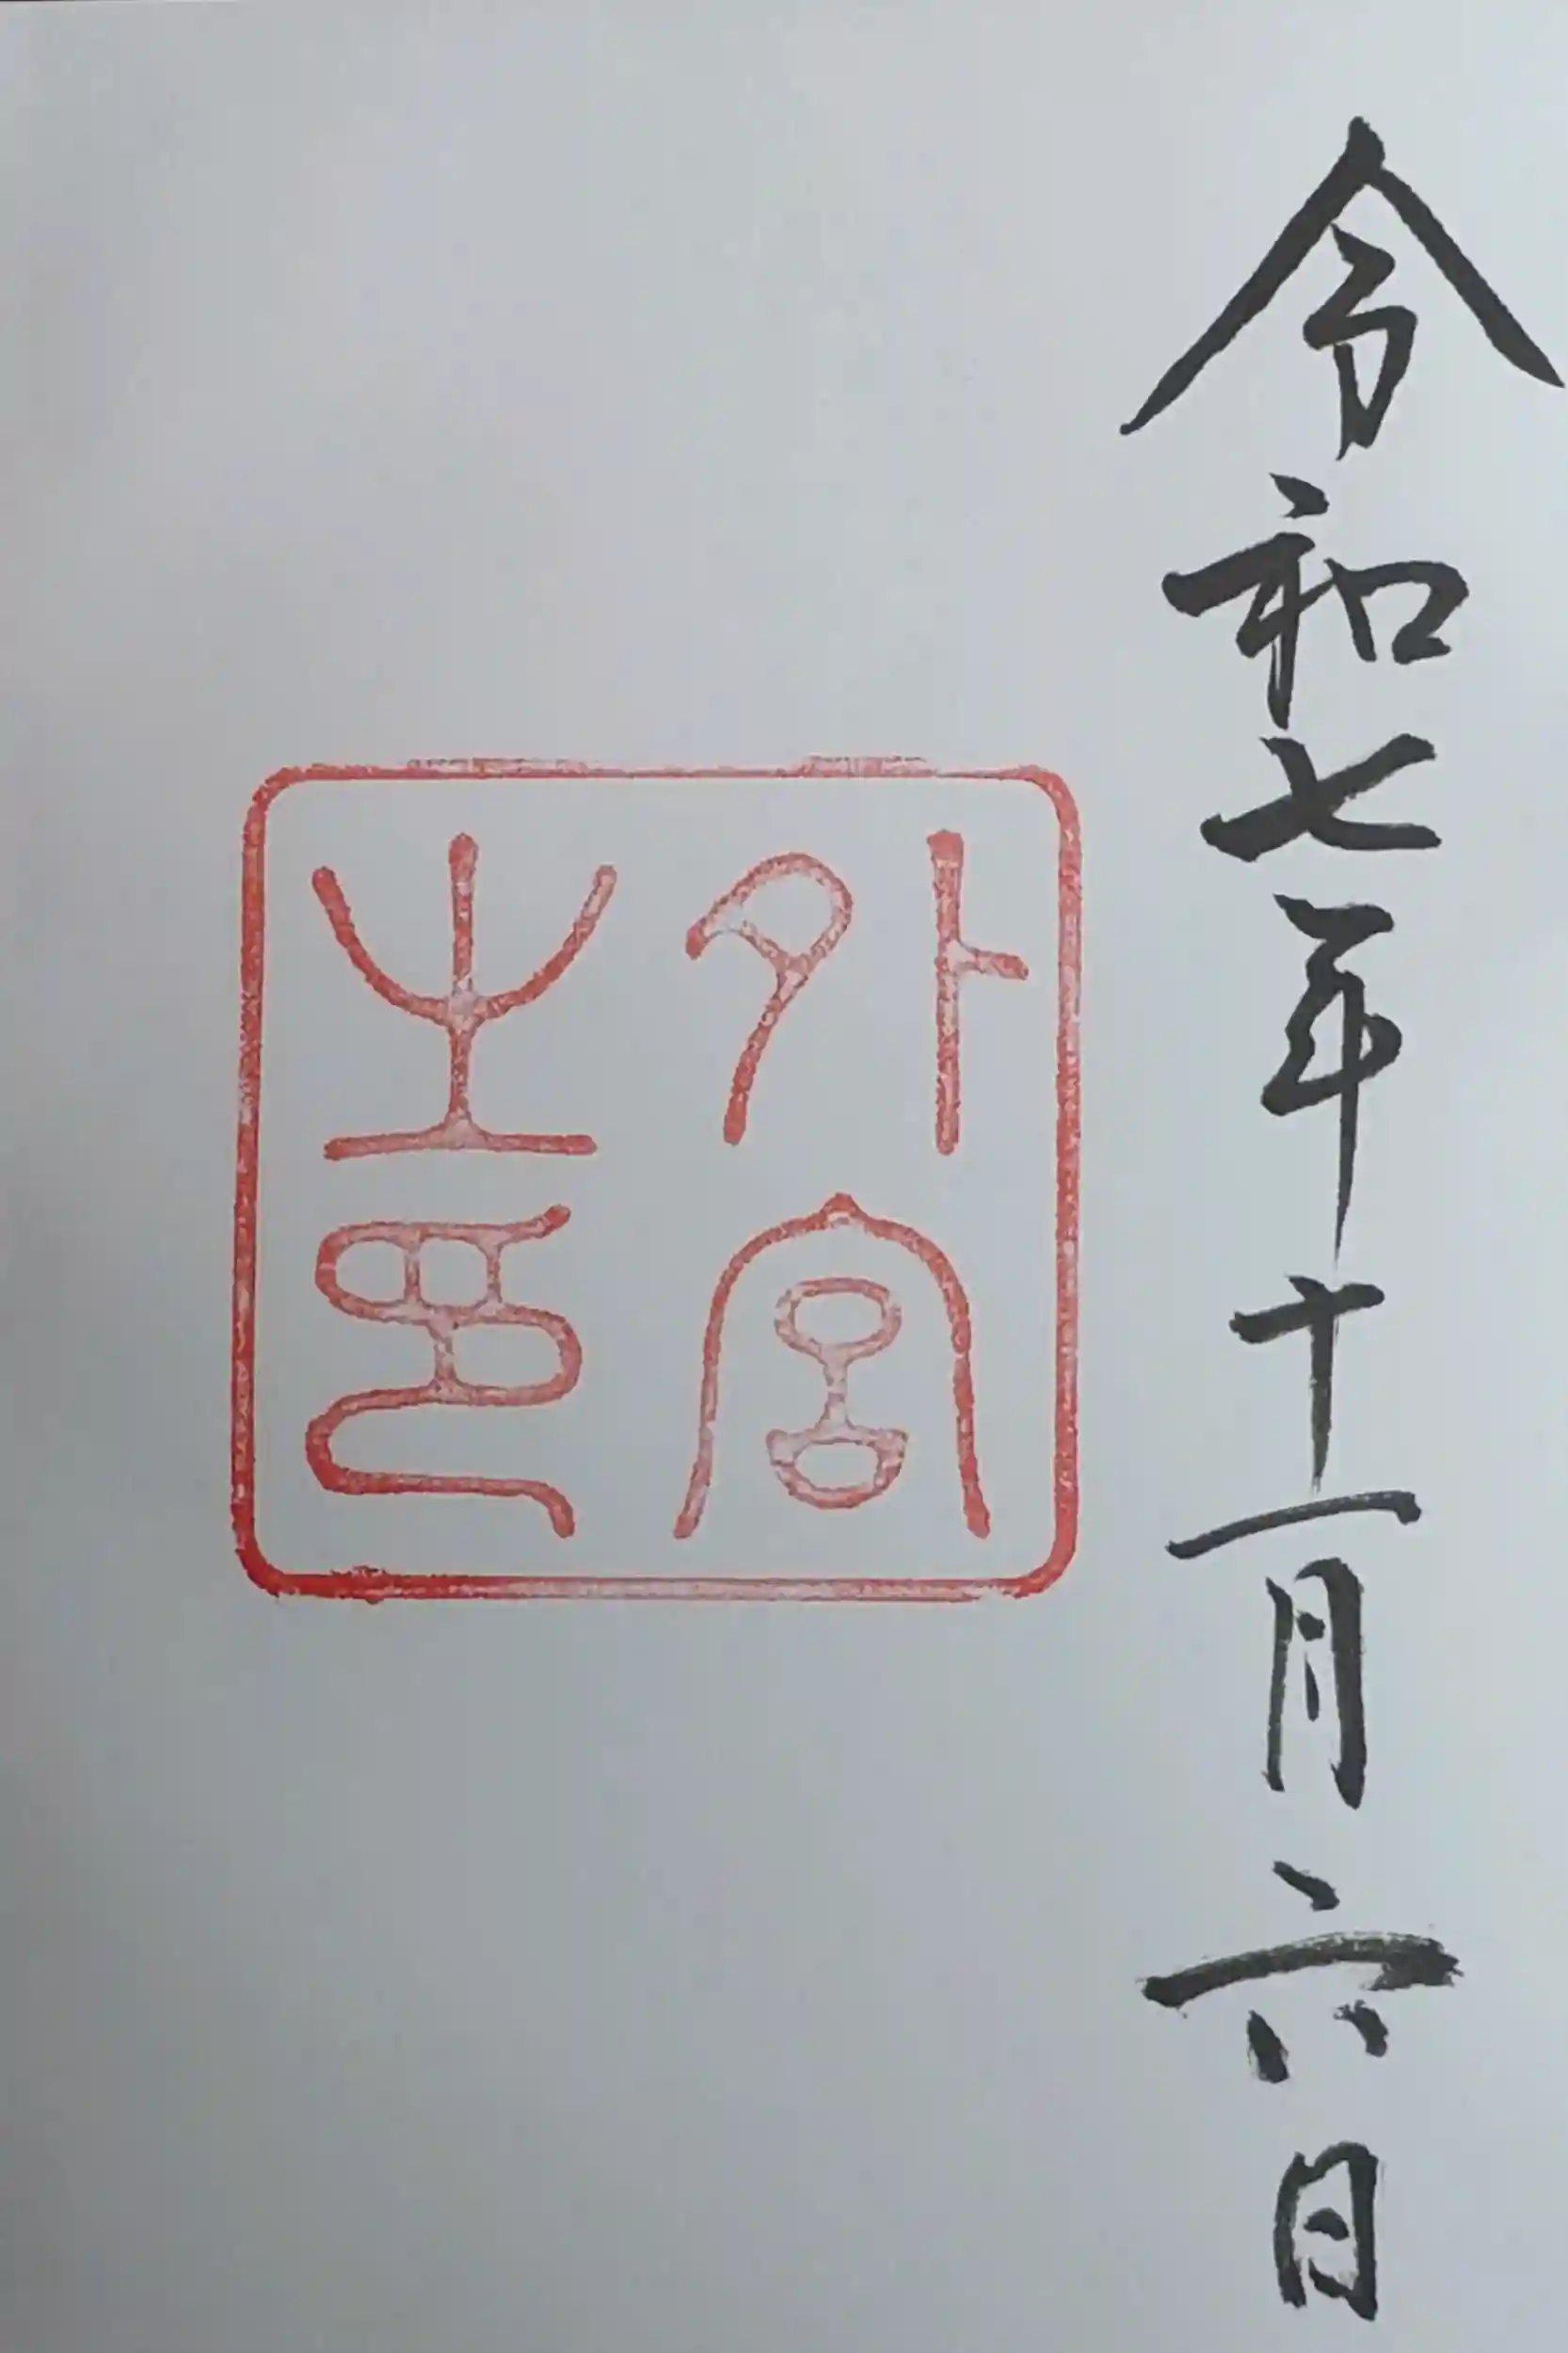 令和七年十一月六日
外宮
之印